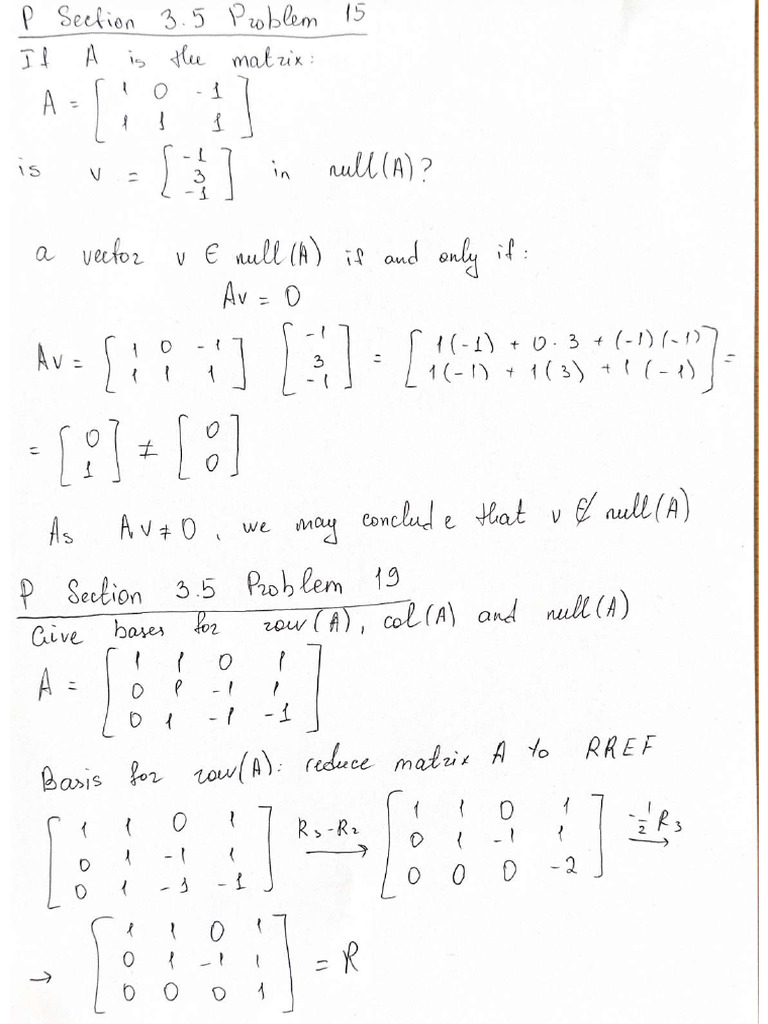 P Section 3.5 Problem 15
If A is the matrix:
A = [ 1 0 -1
1 1 1 ]
is v = [ -1
3
-1 ] in null(A)?
a vector v ∈ null(A) if and only if:
Av = 0
Av = [ 1 0 -1
1 1 1 ] [ -1
3
-1 ] = [ 1(-1) + 0·3 + (-1)(-1)
1(-1) + 1(3) + 1(-1) ] =
= [ 0
1 ] ≠ [ 0
0 ]
As Av ≠ 0, we may conclude that v ∉ null(A)
P Section 3.5 Problem 19
Give bases for row(A), col(A) and null(A)
A = [ 1 1 0 1
0 1 -1 1
0 1 -1 -1 ]
Basis for row(A): reduce matrix A to RREF
[ 1 1 0 1
0 1 -1 1
0 1 -1 -1 ] R3-R2 → [ 1 1 0 1
0 1 -1 1
0 0 0 -2 ] -1/2 R3 →
→ [ 1 1 0 1
0 1 -1 1
0 0 0 1 ] = R